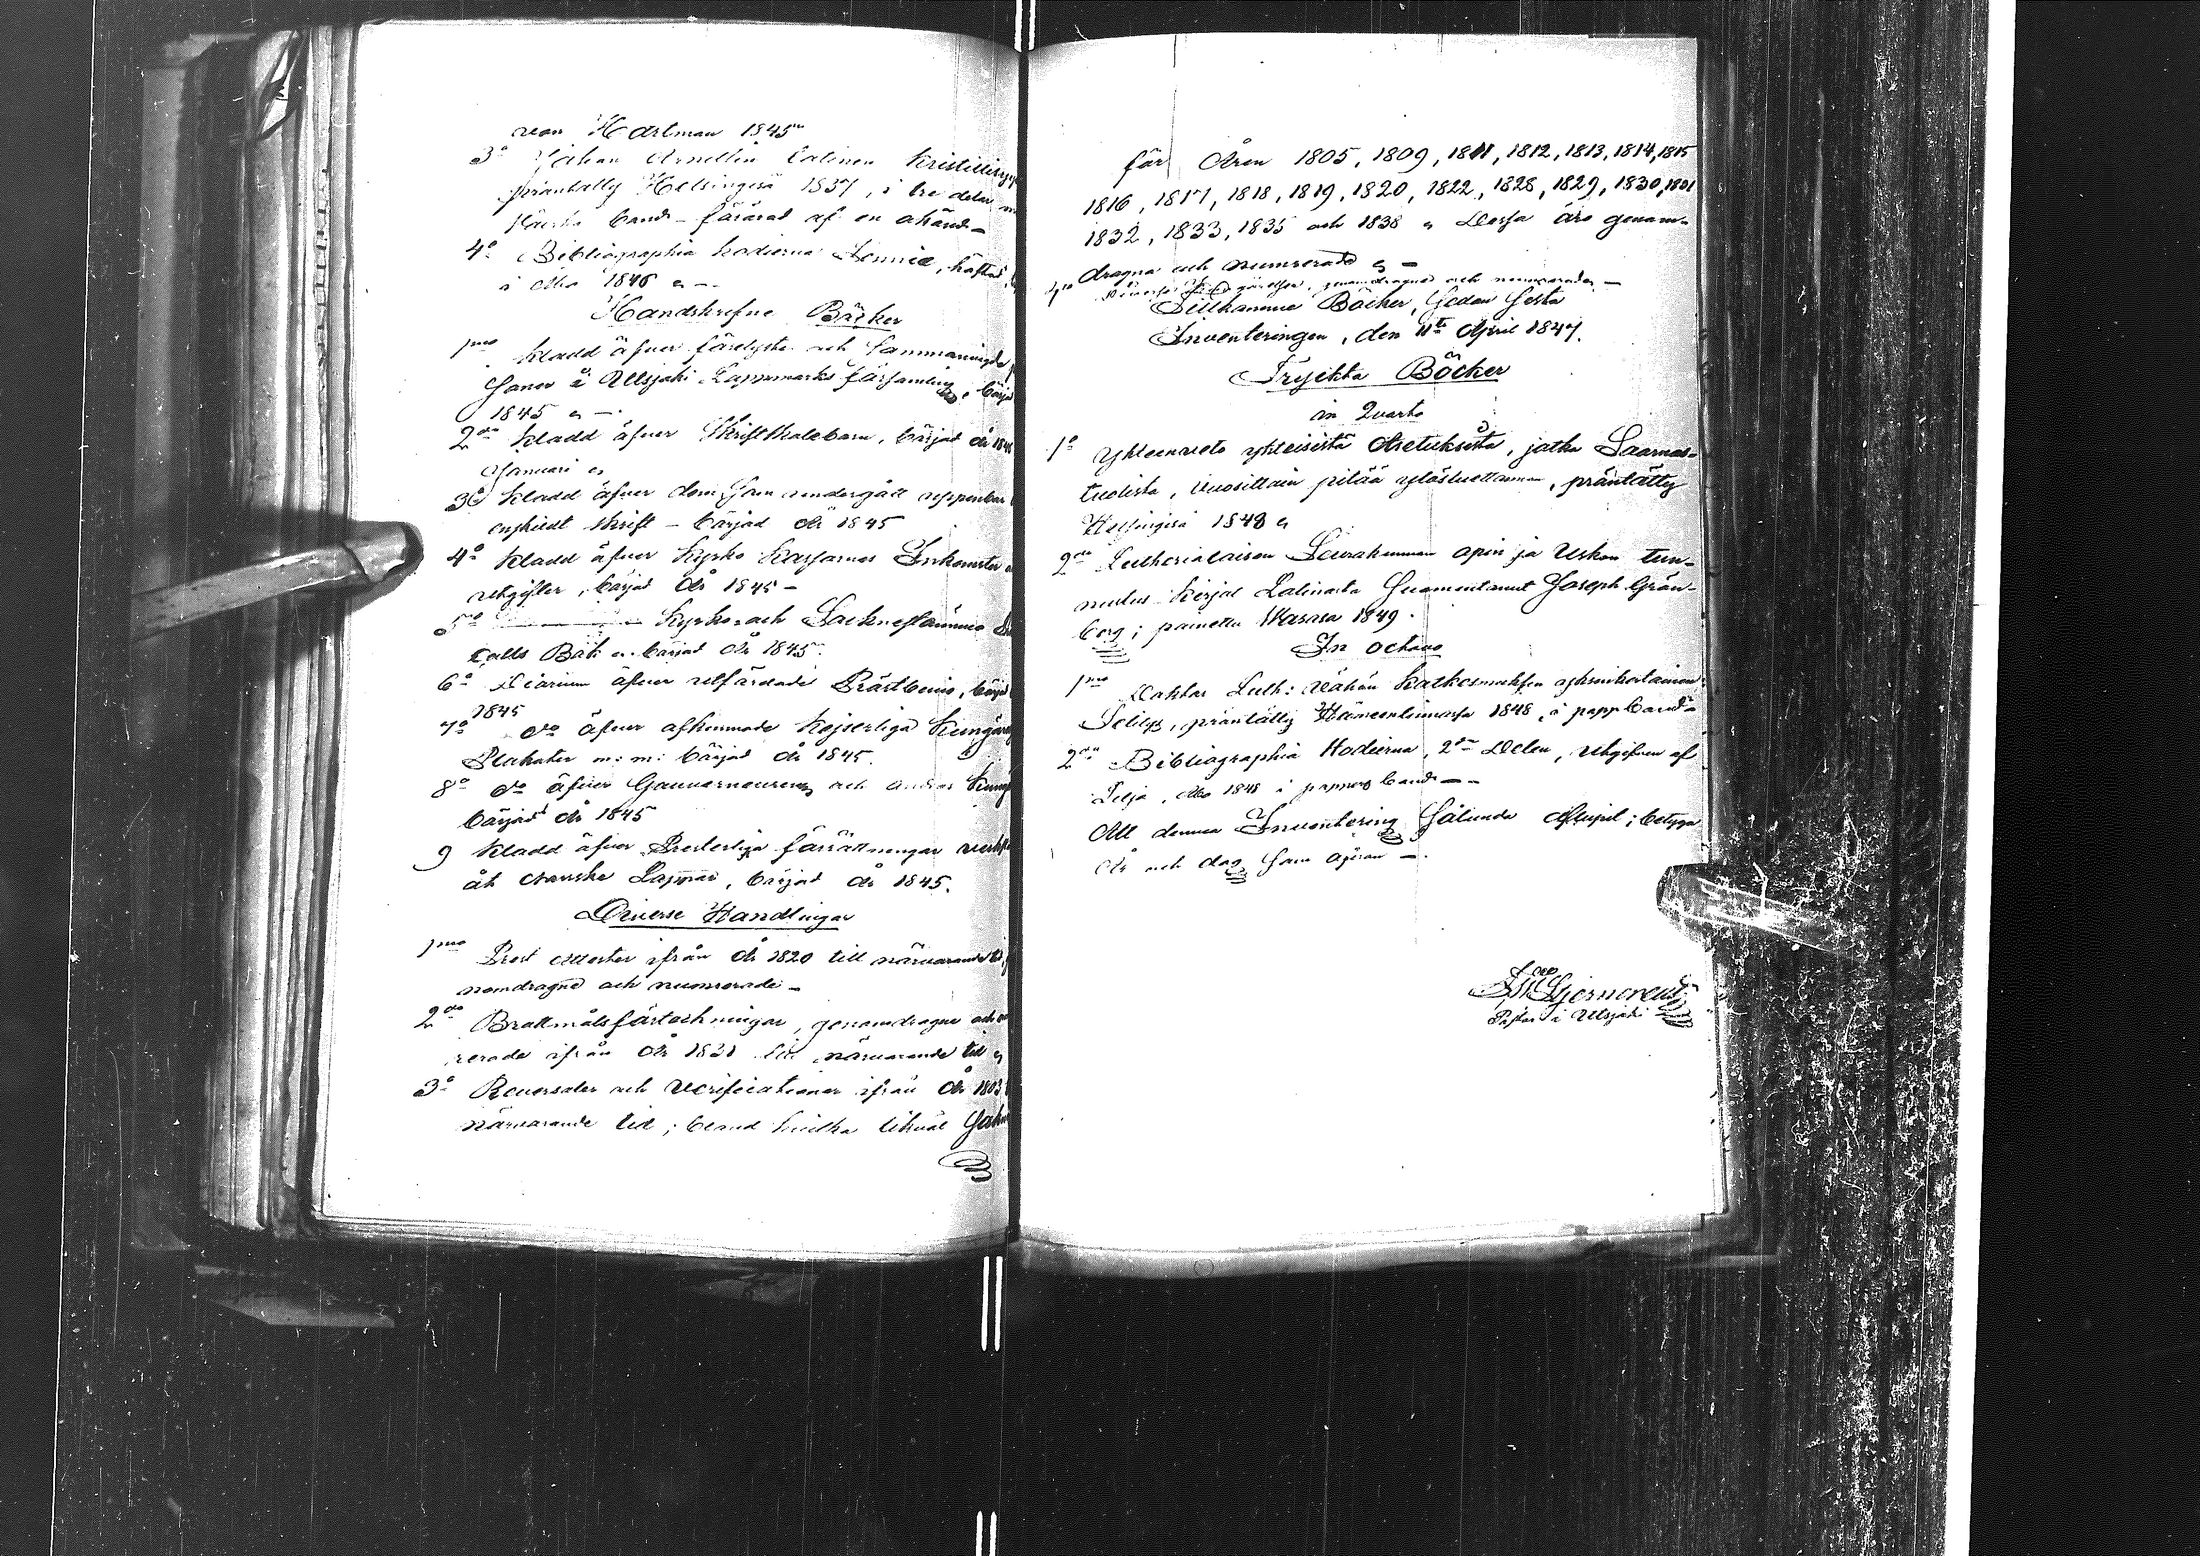 von Hartman 1845
3o Johan Catinen Kristillisy
präntätty Helsingisä 1837, i tre delar
band - förärad af en okänd -
4o Bibliographia hodierna Fennica, häftad,
i Åbo 1846
Handskrefne Böcker
1mo Kladd öfver förelyste och Sammanvigde
Soner i Utsjoki Lappmarks församling, börjad
1845
2do Kladd öfver Skriftskolebarn, börjad år
Januari
3o Kladd öfver dem Som undergått uppenbar
enskiedt skrift - börjad År 1845
4o Kladd öfver Kyrko Kassornas Inkomster
utgifter, börjad År 1845 -
5o Kyrko och Sockne stämmo
calls Bok börjad År 1845.
6o Diarium öfver utfärdade Prästbevis, börjad
1845
7o do öfver afkunnade Kejserliga Kungöre
Plakater m: m: börjad År 1845.
8o do öfver Gouverneurens och andras Kung
börjad År 1845
9 Kladd öfver Presterliga förrättningar
åt Norske Lappar, börjad År 1845.
Diverse Handlingar
1mo Prest Attester ifrån År 1820 till närvarande tid
nomdragne och numrerade -
2do Brottmålsförtekningar, genomdragne och
rerade ifrån År 1821 till närvarande tid
3o Reversaler och Verificationer ifrån År 1803
närvarande tid; bland hvilka likväl Sakn
för Åren 1805, 1809, 1811, 1812, 1813, 1814, 1815
1816, 1817, 1818, 1819, 1820, 1822, 1828, 1829, 1830, 1831
1832, 1833, 1835 och 1838 Dessa äro genom-
dragna och numrerade -
genomdragne och numerade -
Tillkomne Böcker, Sedan Sista
Inventeringen, den 11te April 1847.
Tryckta Böcker
in Quarto
1o Yhteenveto yhteisistä Asetuksista, jotka Saarnas-
tuolista, vuosittain pitää ylösluettaman, präntätty
Helsingisä 1848
2do Lutherialaisen Seurakunnan opin ja Uskon tun-
nustus Kirjat Latinasta Suomentanut Joseph Grön-
berg; painettu Wasasa 1849.
In octavo
1mo Doktor Luth: Vähän Katkesmuksen yksinkertainen
Selitys, präntätty Hämeenlinnassa 1848, i papp band -
2do Bibliographia Hodierna, 2dra Delen, Utgifven af
Lilja, Åbo 1848 i pappers band -
Att denna Inventering Sålunda Aflupit; betyga
År och dag Som ofvan -.
Pastor i Utsjoki